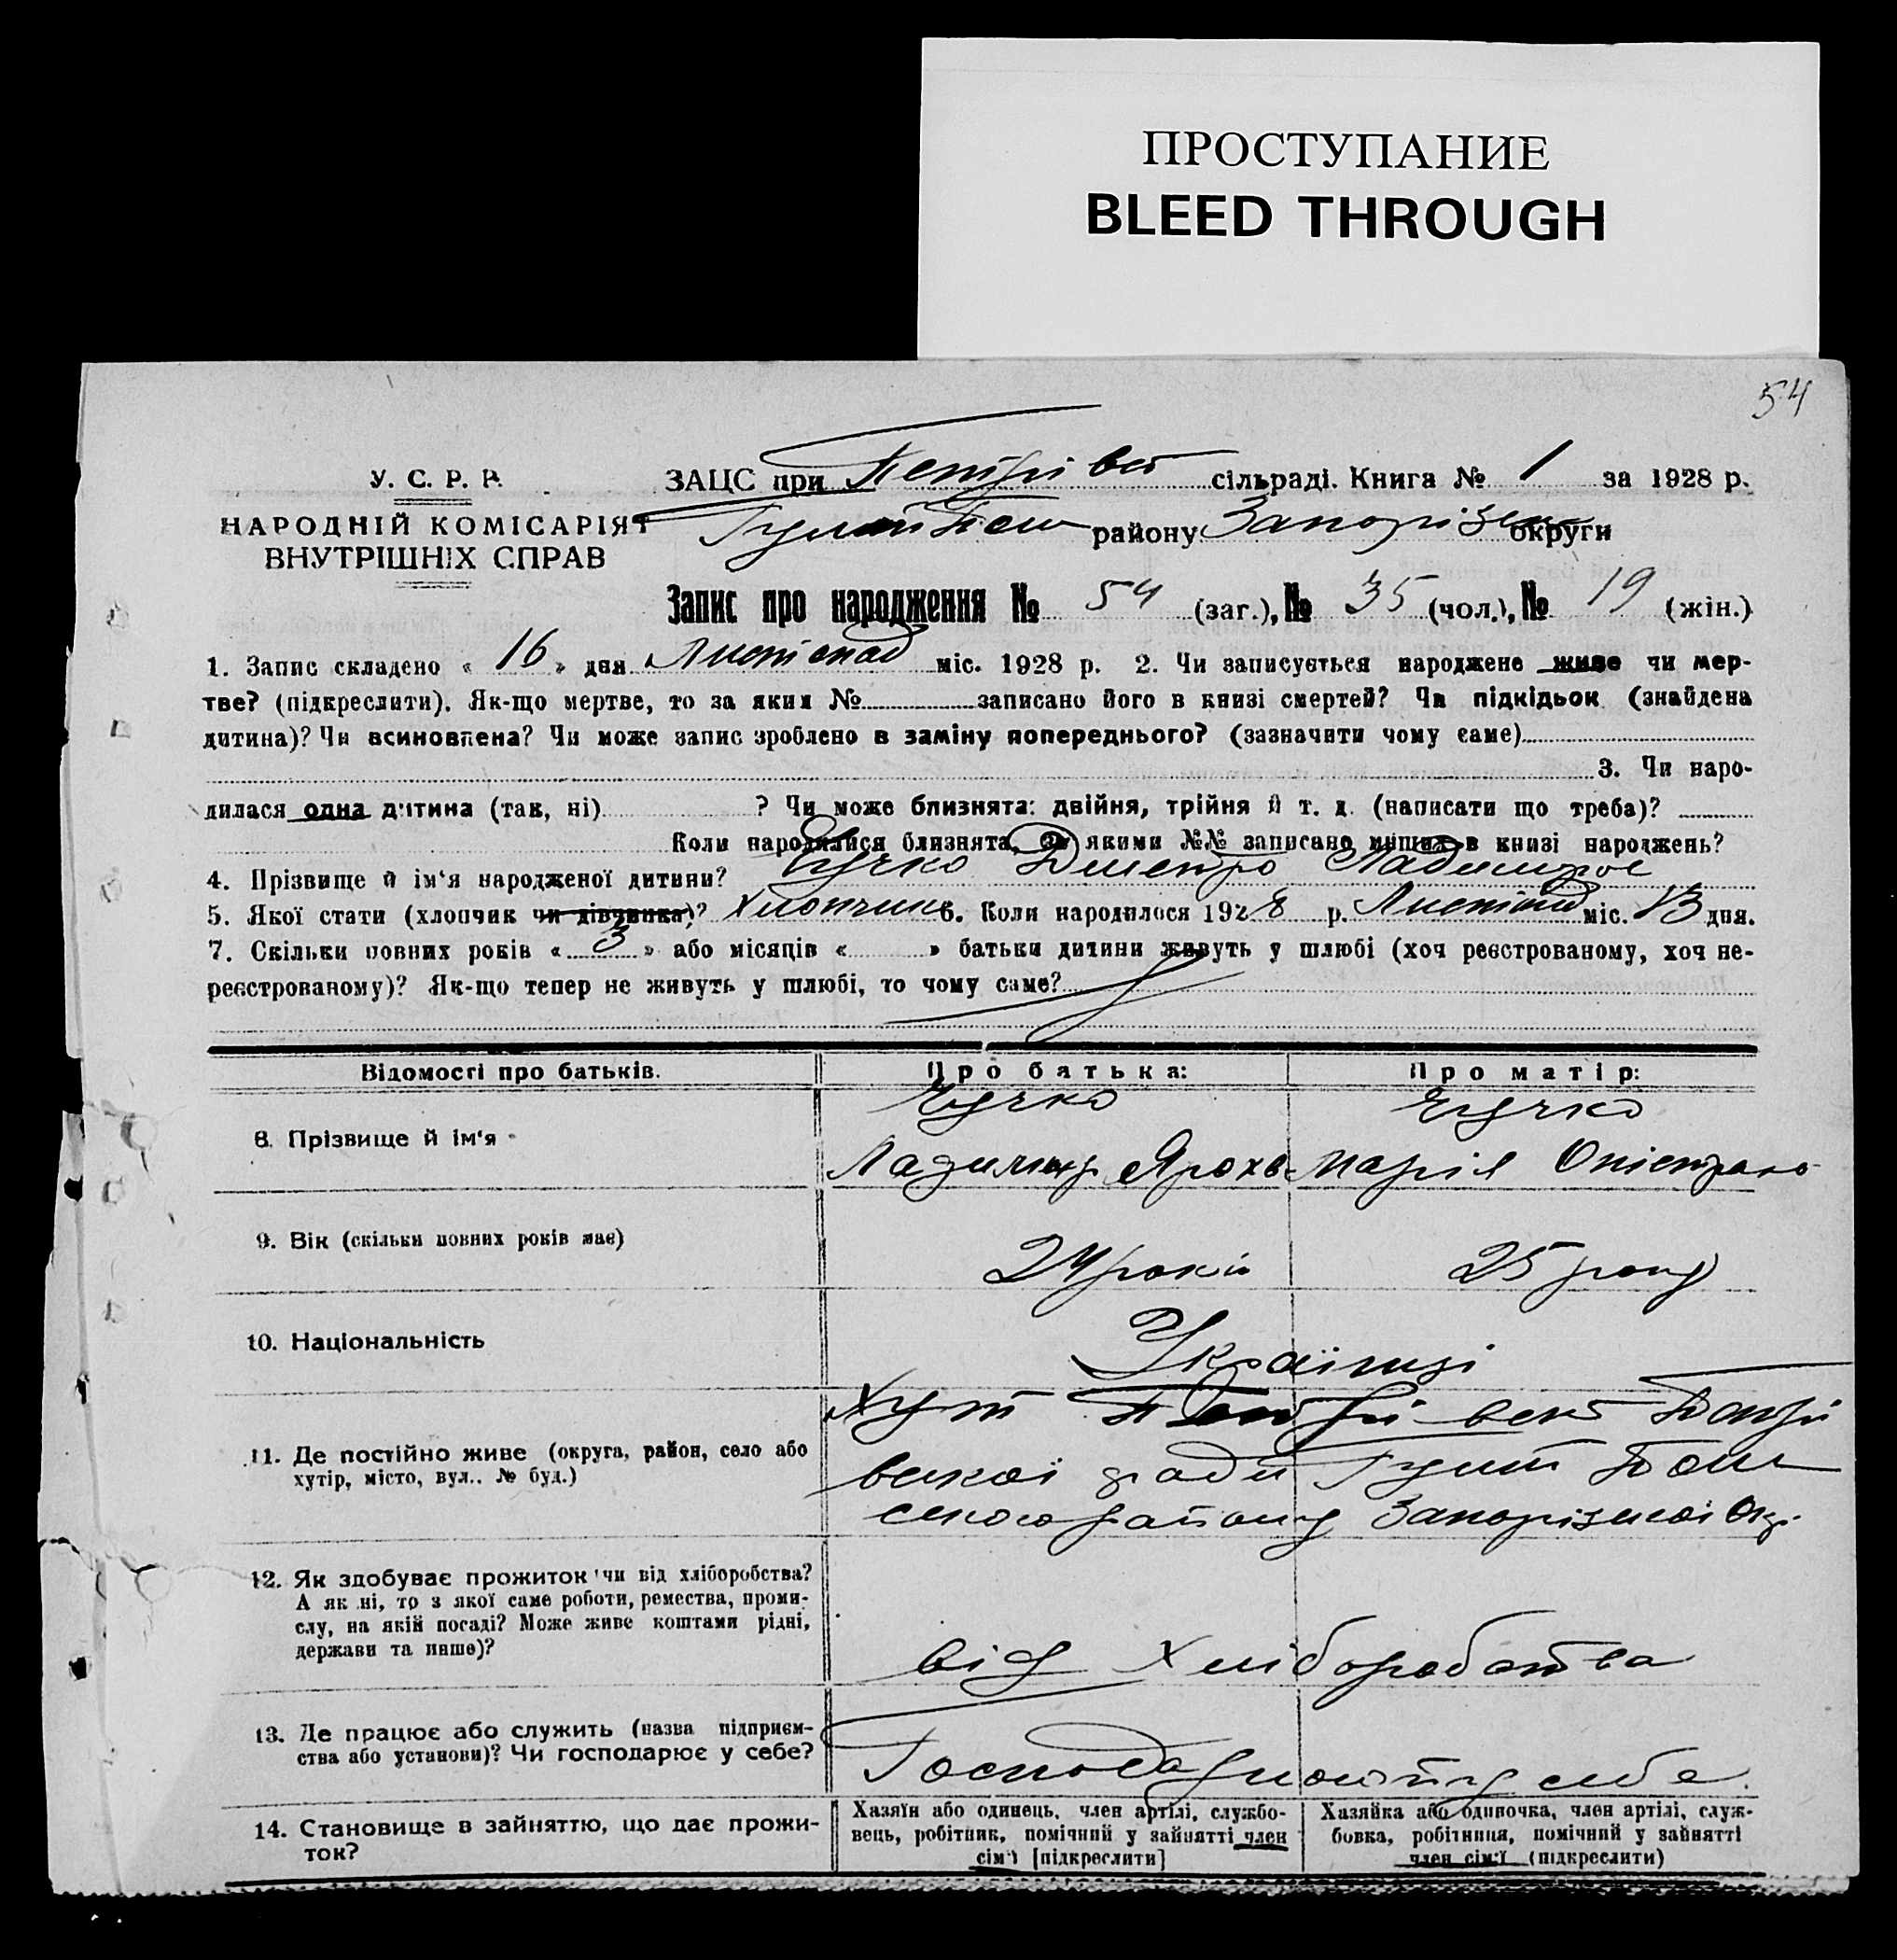 ПРОСТУПАНИЕ
BLEED THROUGH
54
У. С. Р. Р.
НАРОДНІЙ КОМІСАРІЯТ
ВНУТРІШНІХ СПРАВ
ЗАЦС при Петрівсь сільраді. Книга № 1 за 1928 р.
району Запорізьк округи
Запис про народження № 54 (заг.), № 35 (чол.), № 19 (жін.)
1. Запис складено « 16 » дня Листопад міс. 1928 р. 2. Чи записується народжене живе чи мер-
тве? (підкреслити). Як-що мертве, то за яким № записано його в книзі смертей? Чи підкідьок (знайдена
дитина)? Чи всиновлена? Чи може запис зроблено в заміну попереднього? (зазначити чому саме)
3. Чи наро-
дилася одна дитина (так, ні) ? Чи може близнята: двійня, трійня й т. д. (написати що треба)?
Коли народилися близнята, за якими №№ записано инших в книзі народжень?
4. Прізвище й ім'я народженої дитини? Дметро
5. Якої стати (хлопчик чи дівчинка)? Хлопчик 6. Коли народилося 1928 р. Листопад міс. 13 дня.
7. Скільки повних років « 3 » або місяців « » батьки дитини живуть у шлюбі (хоч реєстрованому, хоч не-
реєстрованому)? Як-що тепер не живуть у шлюбі, то чому саме?
Відомості про батьків. Про батька: Про матір:
8. Прізвище й ім'я
Марія
9. Вік (скільки повних років має) 24 років 25 року
10. Національність Українці
11. Де постійно живе (округа, район, село або
хутір, місто, вул.. № буд.)
Хут
вської ради
ського району Запорізької Окр.
12. Як здобуває прожиток чи від хліборобства?
А як ні, то з якої саме роботи, ремества, проми-
слу, на якій посаді? Може живе коштами рідні,
держави та инше)?
від Хліборобства
13. Де працює або служить (назва підприєм-
ства або установи)? Чи господарює у себе?
Господарюють у себе.
14. Становище в зайняттю, що дає прожи-
ток?
Хазяїн або одинець, член артілі, службо-
вець, робітник, помічний у зайнятті член
сім'ї [підкреслити]
Хазяйка або одиночка, член артілі, служ-
бовка, робітниця, помічний у зайнятті
член сім'ї (підкреслити)